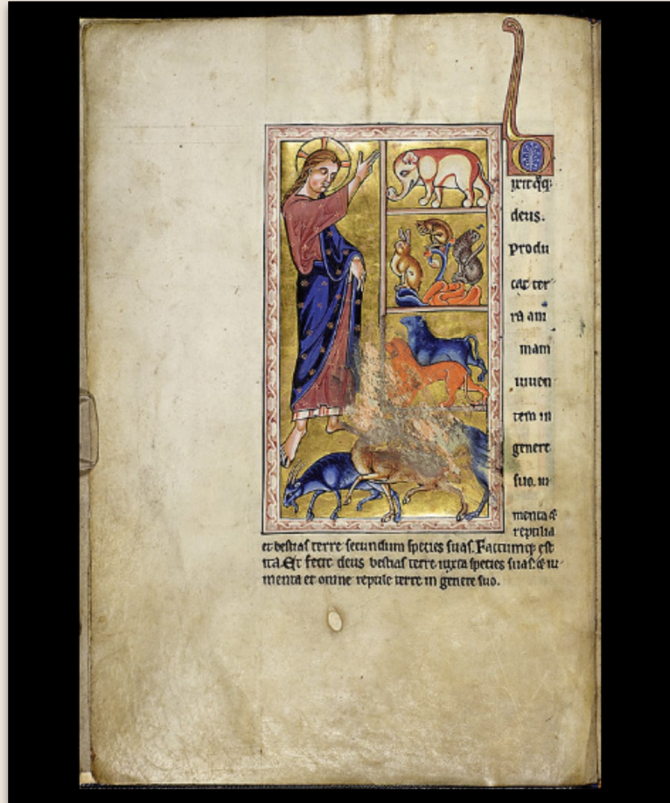 D
ixitq;
deus.
Produ
cat ter
ra ani
mam
uiuen
tem in
genere
suo. iu
menta &
reptilia
et bestias terre secundum species suas. Factumq; est
ita. Et fecit deus bestias terre iuxta species suas. & iu-
menta et omne reptile terre in genere suo.